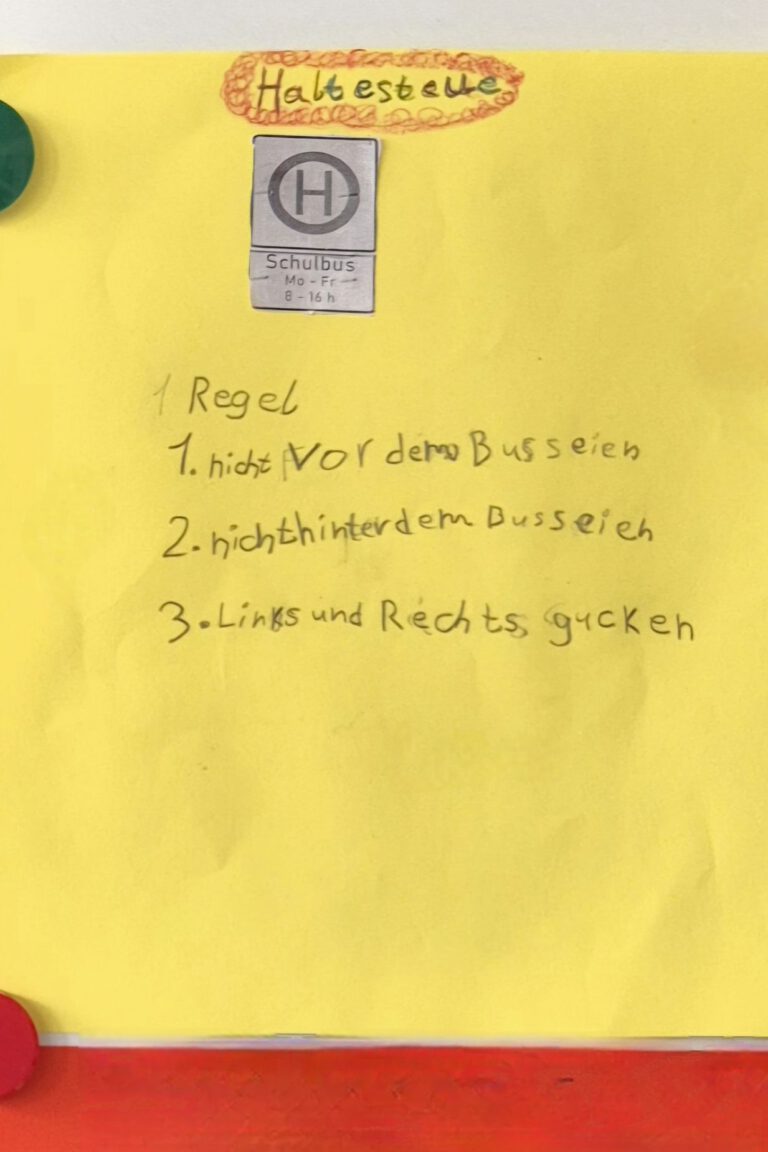 Haltestelle
H
Schulbus
Mo - Fr
8 - 16 h
1 Regel
1. nicht vor dem Bus seien
2. nichthinterdem Busseien
3. Links und Rechts gucken